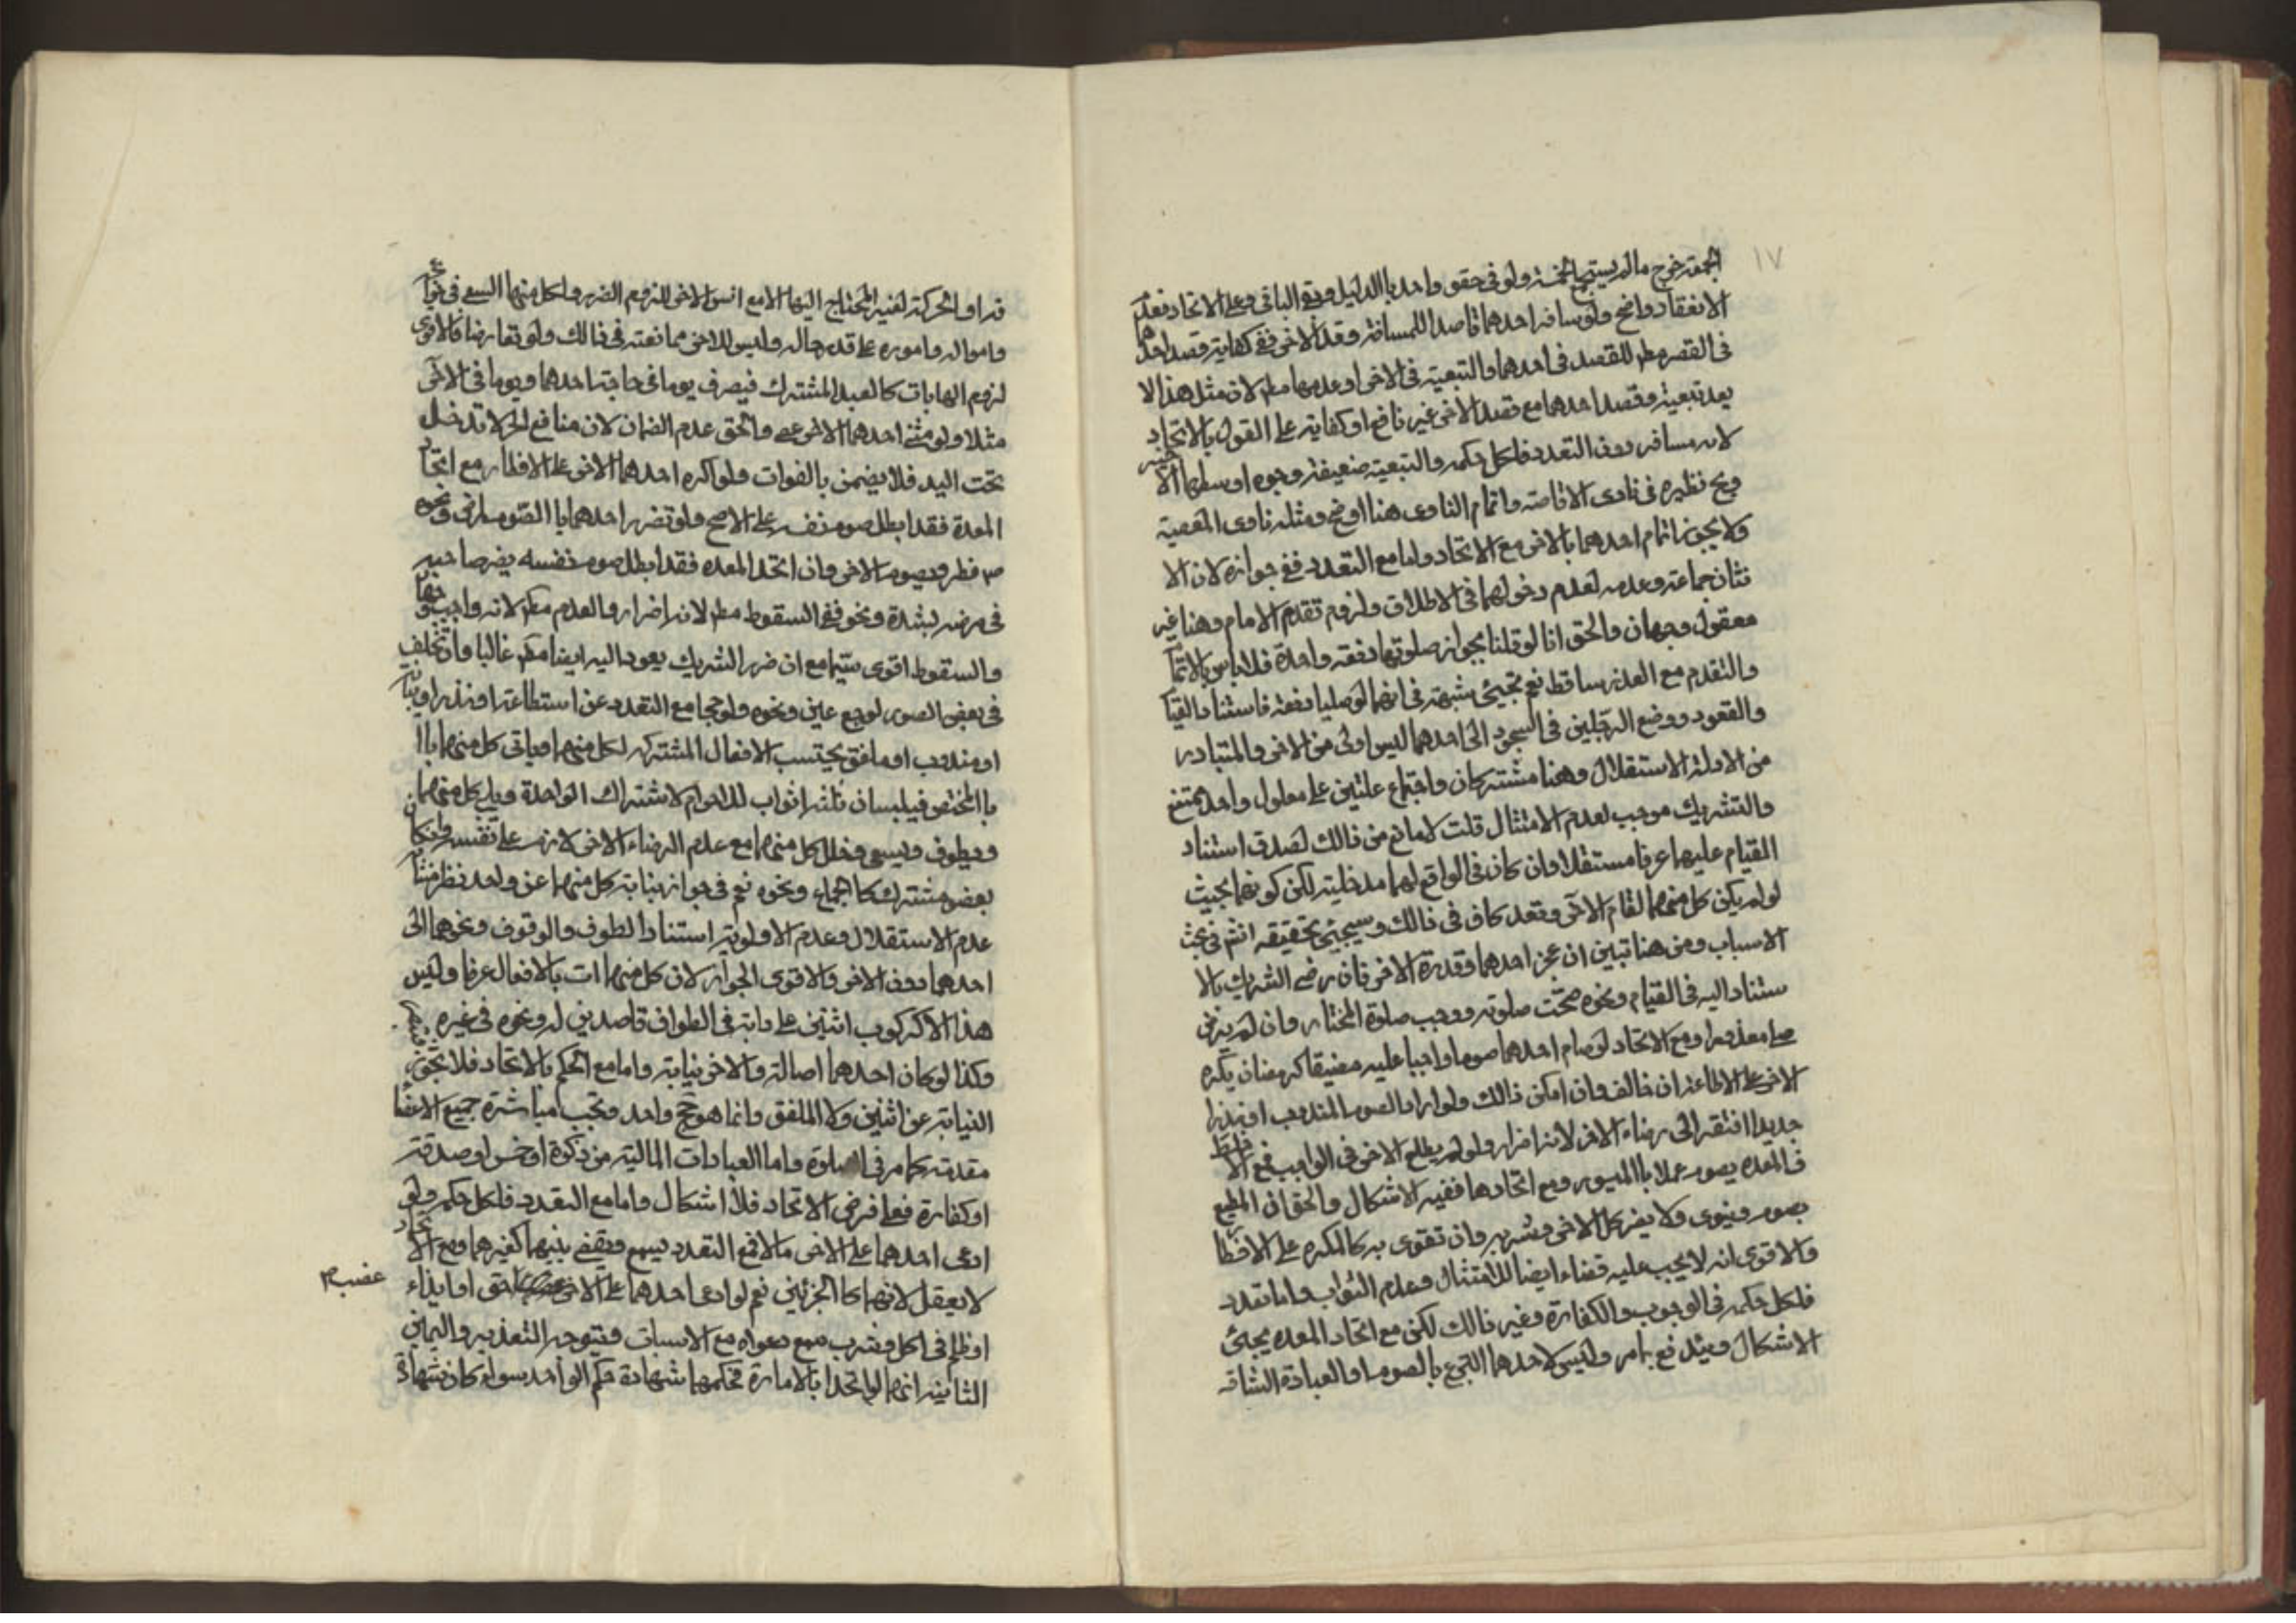 ١٧
الجمعة خرج ما لم يستجمع الخمسة ولو في حقو واحد بالدليل وبقي الباقي وعلى الاتحاد فعدم
الانعقاد واضح ولو سافر احدهما قاصدا للمسافة وفقد الاخر ففي كفاية قصد احدهما
في القصر مطم للقصد في احدهما والتبعية في الاخر او عدمها مطم لان مثل هذا لا
يعد تبعية وقصد احدهما مع فقد الاخر غير نافع او كفايته على القول بالاتحاد
لانه مسافر دون التعدد فلكل حكمه والتبعية ضعيفة وجوه اوسطها الاخير
ويجئ نظيره في ناوى الاقامة واتمام الناوى هنا اوضح ومثله ناوى المعصية
ولا يجوز ائتمام احدهما بالاخر مع الاتحاد واما مع التعدد ففي جوازه لان الا
ثنان جماعة وعدمه لعدم دخولهما في الاطلاق ولزوم تقدم الامام وهنا غير
معقول وجهان والحق انا لو قلنا بجواز صلوتهما دفعة واحدة فلا باس بالائتمام
والتقدم مع العذر ساقط نعم تجيئ شبهة في انهما لو صليا دفعة فاستناد القيام
والقعود ووضع الرجلين في السجود الى احدهما ليس اولى من الاخر والمتبادر
من الادلة الاستقلال وهنا مشتركان واجتماع علتين على معلول واحد ممتنع
والتشريك موجب لعدم الامتثال قلت لا مانع من ذالك لصدق استناد
القيام عليهما عرفا مستقلا وان كان في الواقع لهما مدخلية لكن كونهما بحيث
لو لم يكن كل منهما لقام الاخر وقعد كاف في ذالك وسيجيئ تحقيقه انشم في بحث
الاسباب ومن هنا تبين ان عجز احدهما وقدرة الاخر فان رضي الشريك بالا
ستناد اليه في القيام ونحوه صحت صلوته ووجب صلوة المختار وان لم يرض
صلى معذورا ومع الاتحاد لو صام احدهما صوما واجبا عليه مضيقا كرمضان يكره
الاخر على الاطاعة ان خالف وان امكن ذالك ولو اراد الصوم المندوب او نذرا
جديدا افتقر الى رضاء الاخر لانه اضرار ولو لم يطع الاخر في الواجب فمع الاختلاط
في المعدة يصوم عملا بالميسور ومع اتحادها ففيه الاشكال والحق ان المطيع
يصوم وينوى ولا يضر كل الاخر وشربه وان تقوى به كالمكره على الافطار
والاقوى انه لا يجب عليه قضاء ايضا للامتثال وعدم الثواب واما تعدد
فلكل حكمه في الوجوب والكفارة وغير ذالك لكن مع اتحاد المعدة يجيئ
الاشكال ويندفع بما مر وليس لاحدهما التبرع بالصوم او العبادة الشاقه
او الحركة لغير المحتاج اليها الا مع اذن الاخر للزوم الضرر ولكل منهما السعى في
وامواله واموره على قدر حاله وليس للاخر ممانعته في ذالك ولو تعارضا فالاقوى
لزوم المهايات كالعبد المشترك فيصرف يوما في حاجة احدهما ويوما في الاخر
مثلا ولو منع احدهما الاخر عصى والحق عدم الضمان لان منافع الحر لا تدخل
تحت اليد فلا يضمن بالفوات ولو اكره احدهما الاخر على الافطار مع اتحاد
المعدة فقد ابطل صوم نفسه على الاصح ولو تضرر احدهما بالصوم لمرض ونحوه
فطر ويصوم الاخر وان اتحد المعدة فقد ابطل صوم نفسه يضر صاحبه
في مرضه لشدة ونحوه ففي السقوط مطم لانه اضرار والعدم مطم لانه واجب
والسقوط اقوى سيما مع ان ضرر الشريك يعود اليه ايضا مطم غالبا وان تخلف
في بعض الصور لوجع عين ونحوه ولو حجا مع التعدد عن استطاعة او نذر او نيابة
او مندوب او ملفق يحتسب الافعال المشتركة لكل منهما وياتى كل منهما با
بالمختص فيلبسان ثلثه اثواب للاحرام لاشتراك الواحدة ويلبى كل منهما
ويطوف ويسعى وخلل كل منهما مع عدم الرضاء الاخر لازم على نفسه وان كان
بعضه مشتركا كالجماع ونحوه نعم في جواز نيابة كل منهما عن واحد نظر منشاه
عدم الاستقلال وعدم الاولوية استنادا لطوف والوقوف ونحوهما الى
احدهما دون الاخر والاقوى الجواز لان كل منهما ات بالافعال عرفا وليس
هذا الا كركوب اثنين على دابة في الطواف قاصدين له ونحوه في غيره
وكذا لو كان احدهما اصالة والاخر نيابة واما مع الحكم بالاتحاد فلا يجوز
النيابة عن اثنين ولا الملفق وانما هو حج واحد وتجب مباشرة جميع الاعضاء
مقدمة كما مر في الصلوة واما العبادات المالية من زكوة او خمس او صدقة
او كفارة فعلى فرض الاتحاد فلا اشكال واما مع التعدد فلكل حكمه ولو
ادعى احدهما على الاخر مالا فمع التعدد يسمع ويقضى بينهما كغيرهما ومع الاتحاد
لا يعقل لانهما كالجزئين نعم لو ادعى احدهما على الاخر حق او ايذاء
غصب
او ظلم في اكل وشرب سمع دعواه مع الاسباب ويتوجه التعذير واليمين
الثانية انهما لو اتحدا بالامارة فحكمهما شهادة حكم الواحد سواء كان شهادة